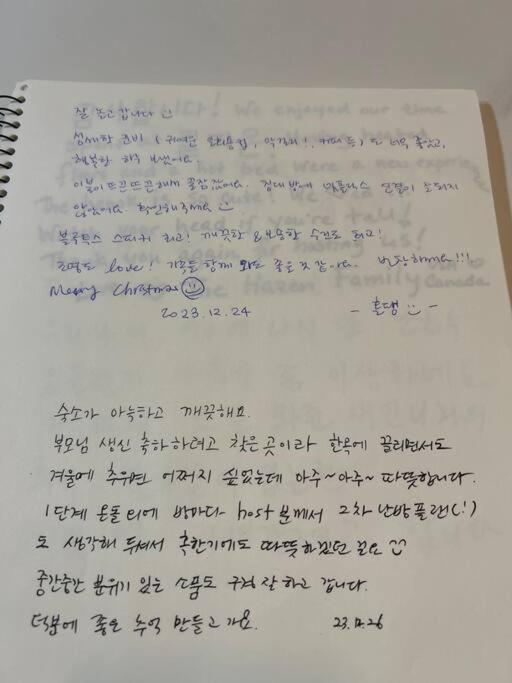 잘 놀고 갑니다 :)
섬세한 준비 ( 귀여운 화장실, 막걸리!, 커피 등) 도 너무 좋았고,
행복한 하루 보냈어요
이불이 뜨끈뜨끈해서 꿀잠 잤어요. 건넌방에 와이파이 연결이 잘되지
않았어요. 확인해주세요 :)
블루투스 스피커 최고! 깨끗한 & 뽀송한 수건도 최고!
조명도 love! 가족들 함께 와도 좋을것 같아요. 번창하세요!!!
Merry Christmas
2023.12.24
숙소가 아늑하고 깨끗해요.
부모님 생신 축하하려고 찾은 곳이라 한옥에 끌리면서도
겨울에 추우면 어쩌지 싶었는데 아주~아주~ 따뜻합니다.
1단계 온돌 외에 방마다 host 분께서 2차 난방플랜(!)
도 생각해 두셔서 혹한기에도 따뜻하겠던 걸요 :)
중간중간 분위기 있는 소품도 구경 잘하고 갑니다.
덕분에 좋은 추억 만들고 가요. 23.12.26